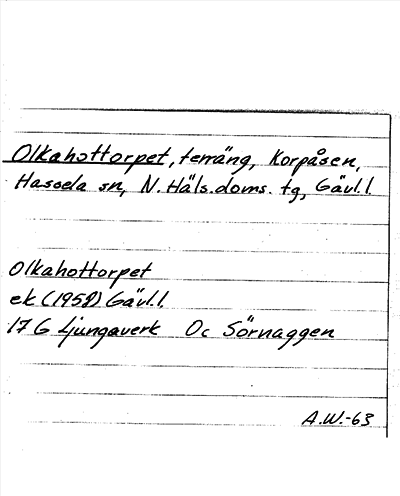 Olkahottorpet, terräng, Korpåsen,
Hassela sn, N. Häls. doms. tg, Gävl. l.
Olkahottorpet
ek (1958) Gävl. l.
17 G Ljungaverk 0c Sörnaggen
A.W.-63